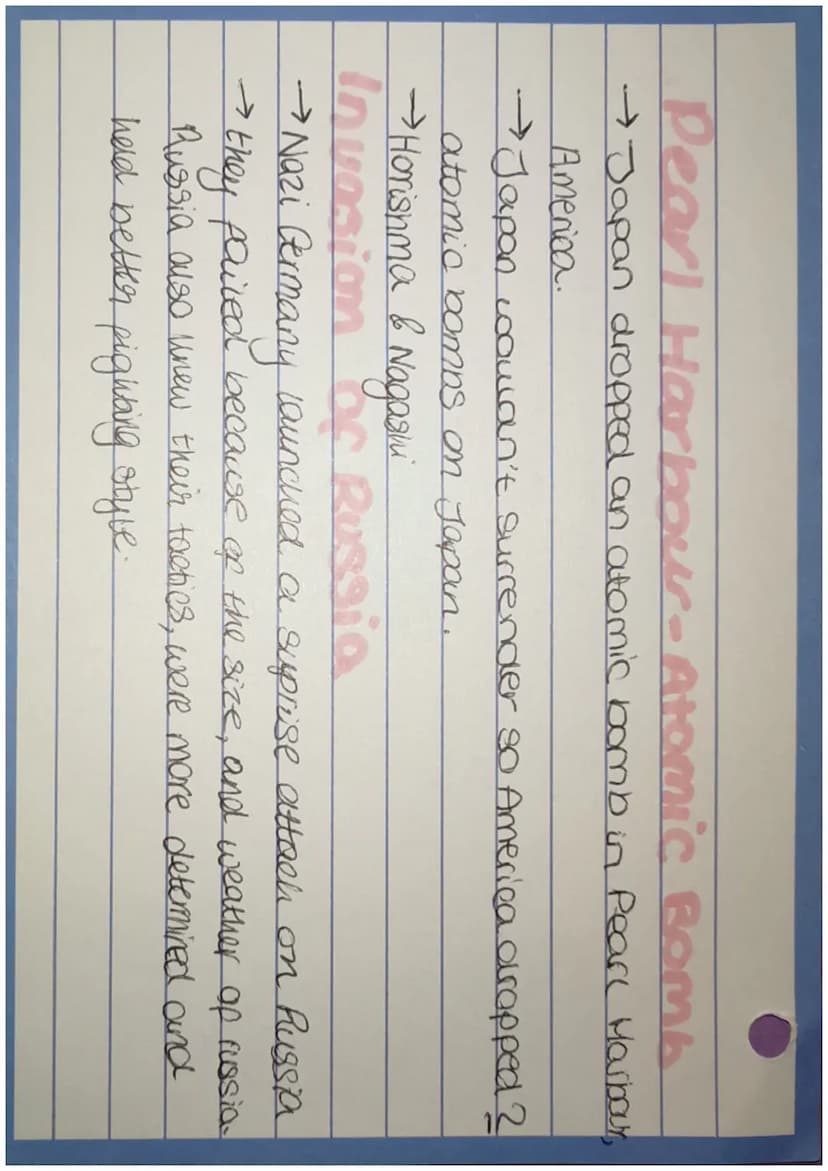 Pearl Harbour - Atomic Bomb
→ Japan dropped an atomic bomb in Pearl Harbour,
America.
→ Japan wouldn't surrender so America dropped 2
atomic bombs on Japan.
→ Horishma & Nagaski
Invasion of Russia
→ Nazi Germany launched a suprise attack on Russia
→ they failed because of the size, and weather of russia.
Russia also knew their tactics, were more determined and
held better fighting style.